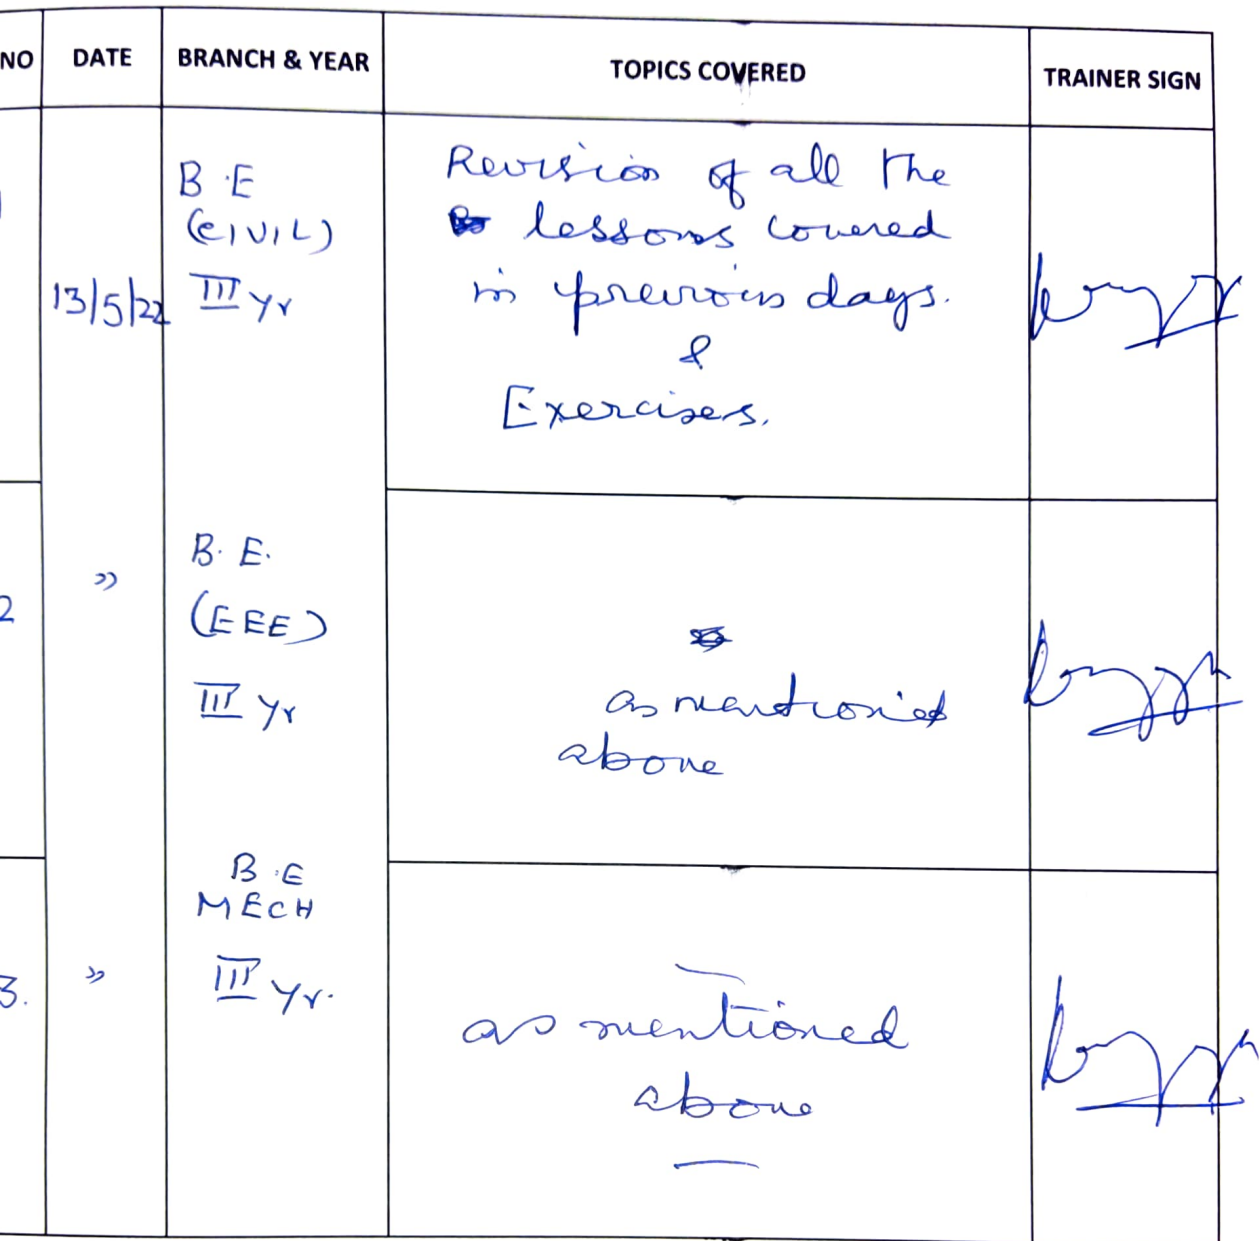 NO DATE BRANCH & YEAR TOPICS COVERED TRAINER SIGN
1 13/5/22 B.E
(CIVIL)
III Yr
Revision of all the
lessons covered
in previous days.
&
Exercises.
2 " B. E.
(EEE)
III Yr
as mentioned
above
3. " B.E
MECH
III Yr.
as mentioned
above